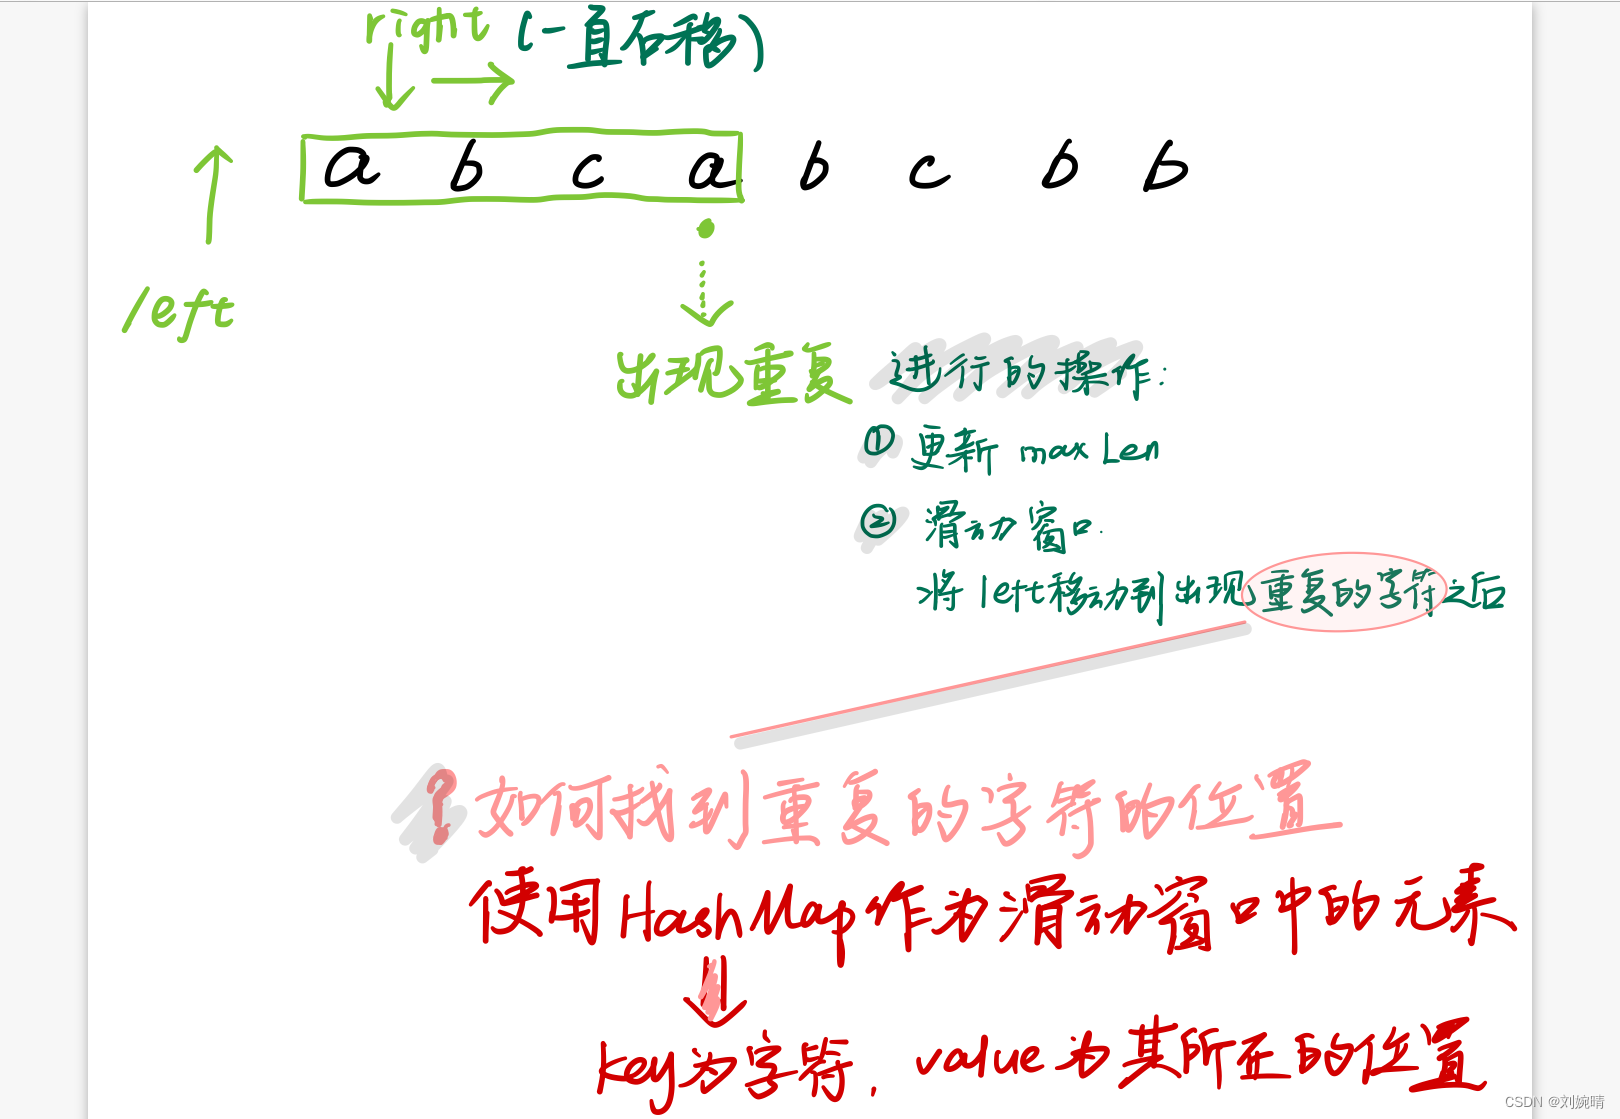 right (一直右移)
a b c a b c b b
left
出现重复 进行的操作:
① 更新 maxLen
② 滑动窗口.
将left移动到出现重复的字符之后
? 如何找到重复的字符的位置
使用HashMap作为滑动窗口中的元素
key为字符, value为其所在的位置
CSDN @刘婉晴